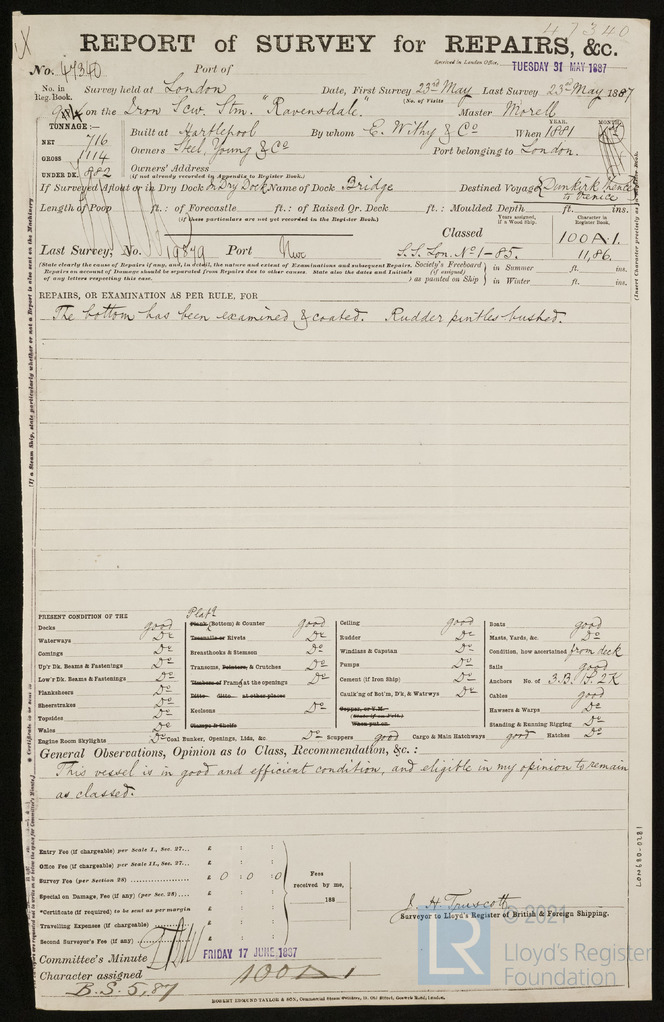 47340
REPORT of SURVEY for REPAIRS, &c.
No. 47340 Port of Received in London Office, TUESDAY 31 MAY 1887
No. in Reg. Book. Survey held at London Date, First Survey 23rd May Last Survey 23rd May 1887
(No. of Visits
on the Iron Scw. Stm. "Ravensdale." Master Morell
TONNAGE :— YEAR. MONTH.
NET 716 Built at Hartlepool By whom E. Withy & Co When 1881
GROSS 1114 Owners Steel, Young & Co Port belonging to London.
UNDER DK. 882 Owners' Address
(if not already recorded in Appendix to Register Book.)
If Surveyed Afloat or in Dry Dock Dry Dock Name of Dock Bridge Destined Voyage Dunkirk thence to Venice
Length of Poop ft.: of Forecastle ft.: of Raised Qr. Deck ft.: Moulded Depth ft. ins.
(if these particulars are not yet recorded in the Register Book.)
Years assigned, if a Wood Ship. Character in Register Book.
Classed 100A1.
Last Survey, No. 19879 Port Nwc S.S. Lon. No 1-85. 11,86.
(State clearly the cause of Repairs if any, and, in detail, the nature and extent of Examinations and subsequent Repairs.
Repairs on account of Damage should be separated from Repairs due to other causes. State also the dates and Initials
of any letters respecting this case.
Society's Freeboard (if assigned) as painted on Ship in Summer ft. ins.
in Winter ft. ins.
REPAIRS, OR EXAMINATION AS PER RULE, FOR
The bottom has been examined & coated. Rudder pintles bushed.
PRESENT CONDITION OF THE
Decks good
Waterways Do
Comings Do
Up'r Dk. Beams & Fastenings Do
Low'r Dk. Beams & Fastenings Do
Planksheers Do
Sheerstrakes Do
Topsides Do
Wales Do
Engine Room Skylights Do
Platg
Plank (Bottom) & Counter good
Treenails or Rivets Do
Breasthooks & Stemson Do
Transoms, Pointers, & Crutches Do
Timbers of Frame at the openings Do
Ditto Ditto at other places
Keelsons Do
Clamps & Shelfs
Coal Bunker, Openings, Lids, &c. Do
Ceiling good
Rudder Do
Windlass & Capstan Do
Pumps Do
Cement (if Iron Ship) Do
Caulk'ng of Bot'm, D'k, & Watrwys Do
Copper, or Y.M.
(State if on Felt.)
When put on
Scuppers good Cargo & Main Hatchways good Hatches Do
Boats good
Masts, Yards, &c. Do
Condition, how ascertained from deck
Sails good
Anchors No. of 3.B. 1.S. 2K
Cables good
Hawsers & Warps Do
Standing & Running Rigging Do
General Observations, Opinion as to Class, Recommendation, &c. :
This vessel is in good and efficient condition, and eligible in my opinion to remain
as classed.
Entry Fee (if chargeable) per Scale I., Sec. 27... £ : :
Office Fee (if chargeable) per Scale II., Sec. 27... £ : :
Survey Fee (per Section 28) £ 0 : 0 : 0
Special on Damage, Fee (if any) (per Sec. 28).... £ : :
*Certificate (if required) to be sent as per margin £ : :
Travelling Expenses (if chargeable) £ : :
Second Surveyor's Fee (if any) £ : :
Fees received by me, 188
J. H. Truscott
Surveyor to Lloyd's Register of British & Foreign Shipping.
Committee's Minute FRIDAY 17 JUNE 1887
Character assigned 100A1
B.S. 5,87
ROBERT EDMUND TAYLOR & SON,
LON680-0281
© 2021
LR
Lloyd's Register
Foundation